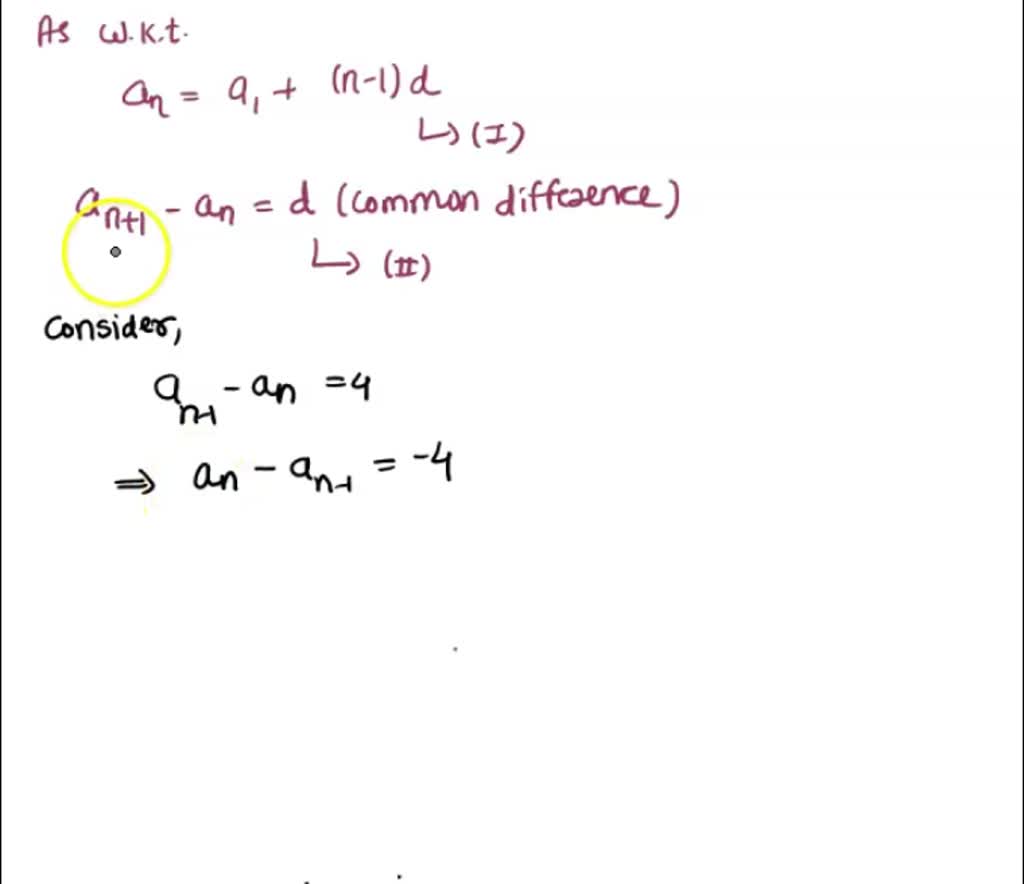 As w.k.t.
an = a1 + (n-1)d
↳ (I)
an+1 - an = d (common difference)
↳ (II)
Consider,
an-1 - an = 4
⇒ an - an-1 = -4